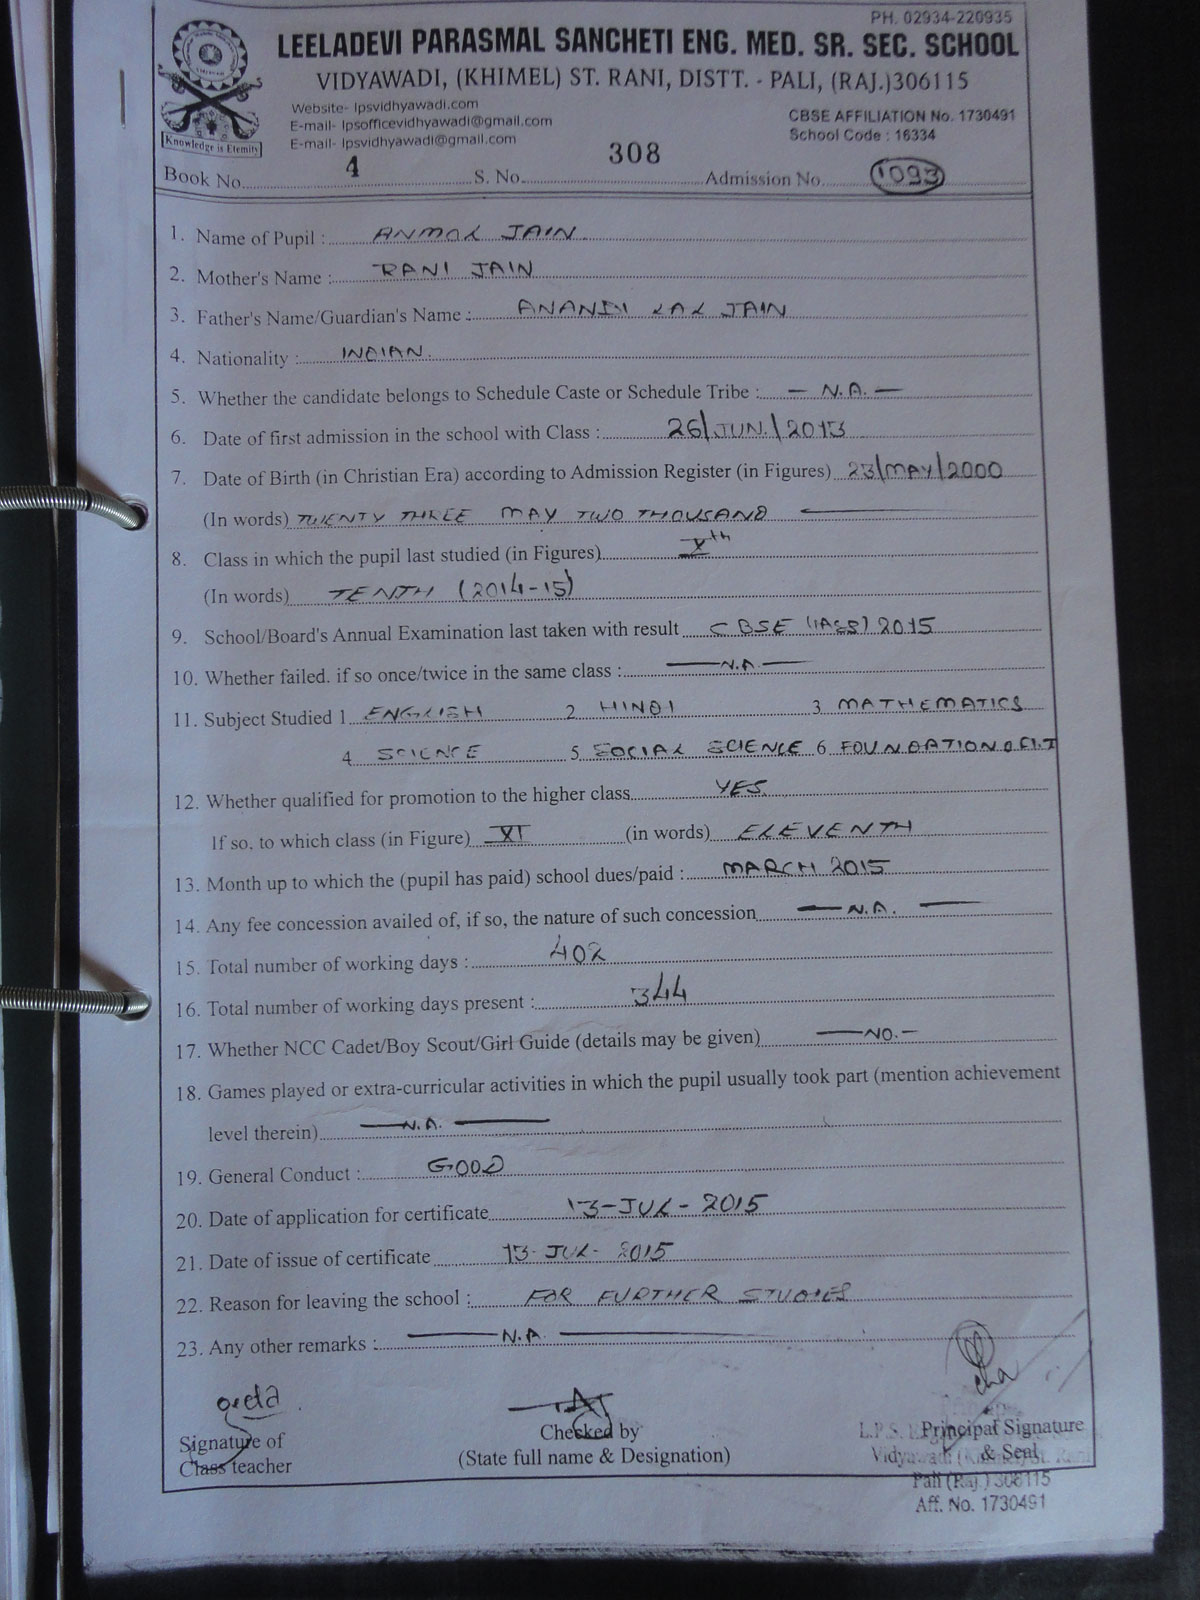 PH. 02934-220935
LEELADEVI PARASMAL SANCHETI ENG. MED. SR. SEC. SCHOOL
VIDYAWADI, (KHIMEL) ST. RANI, DISTT. - PALI, (RAJ.)306115
Website- lpsvidhyawadi.com
E-mail- lpsofficevidhyawadi@gmail.com
E-mail- lpsvidhyawadi@gmail.com
CBSE AFFILIATION No. 1730491
School Code : 16334
Knowledge is Eternity
Book No. 4 S. No. 308 Admission No. 1093
1. Name of Pupil : ANMOL JAIN
2. Mother's Name : RANI JAIN
3. Father's Name/Guardian's Name : ANANDI LAL JAIN
4. Nationality : INDIAN
5. Whether the candidate belongs to Schedule Caste or Schedule Tribe : — N.A. —
6. Date of first admission in the school with Class : 26/JUN./2013
7. Date of Birth (in Christian Era) according to Admission Register (in Figures) 23/MAY/2000
(In words) TWENTY THREE MAY TWO THOUSAND
8. Class in which the pupil last studied (in Figures) Xth
(In words) TENTH (2014-15)
9. School/Board's Annual Examination last taken with result CBSE (PASS) 2015
10. Whether failed. if so once/twice in the same class : —N.A.—
11. Subject Studied 1 ENGLISH 2 HINDI 3 MATHEMATICS
4 SCIENCE 5 SOCIAL SCIENCE 6 FOUNDATION OF I.T
12. Whether qualified for promotion to the higher class YES
If so, to which class (in Figure) XI (in words) ELEVENTH
13. Month up to which the (pupil has paid) school dues/paid : MARCH 2015
14. Any fee concession availed of, if so, the nature of such concession — N.A. —
15. Total number of working days : 402
16. Total number of working days present : 344
17. Whether NCC Cadet/Boy Scout/Girl Guide (details may be given) —NO.—
18. Games played or extra-curricular activities in which the pupil usually took part (mention achievement
level therein) —N.A. —
19. General Conduct : GOOD
20. Date of application for certificate 13-JUL-2015
21. Date of issue of certificate 13-JUL-2015
22. Reason for leaving the school : FOR FURTHER STUDIES
23. Any other remarks : —N.A. —
geeta
Signature of
Class teacher
Checked by
(State full name & Designation)
Principal Signature
& Seal
L.P.S.
Vidyawadi
Pali (Raj.) 306115
Aff. No. 1730491